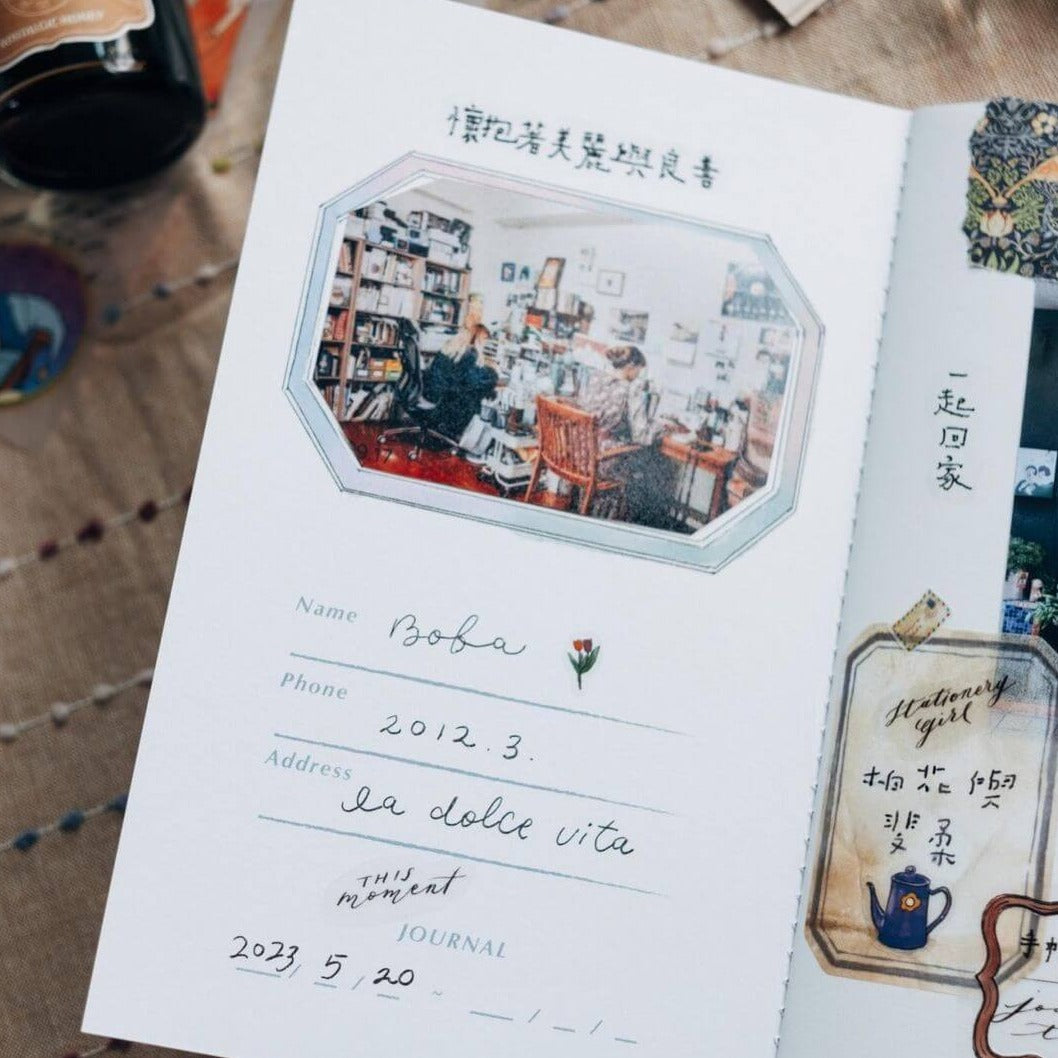 懷抱著美麗與良善
Name Boba
Phone 2012.3.
Address la dolce vita
THIS
moment
JOURNAL
2023/5/20 ~ __/__/__
一起回家
stationery
girl